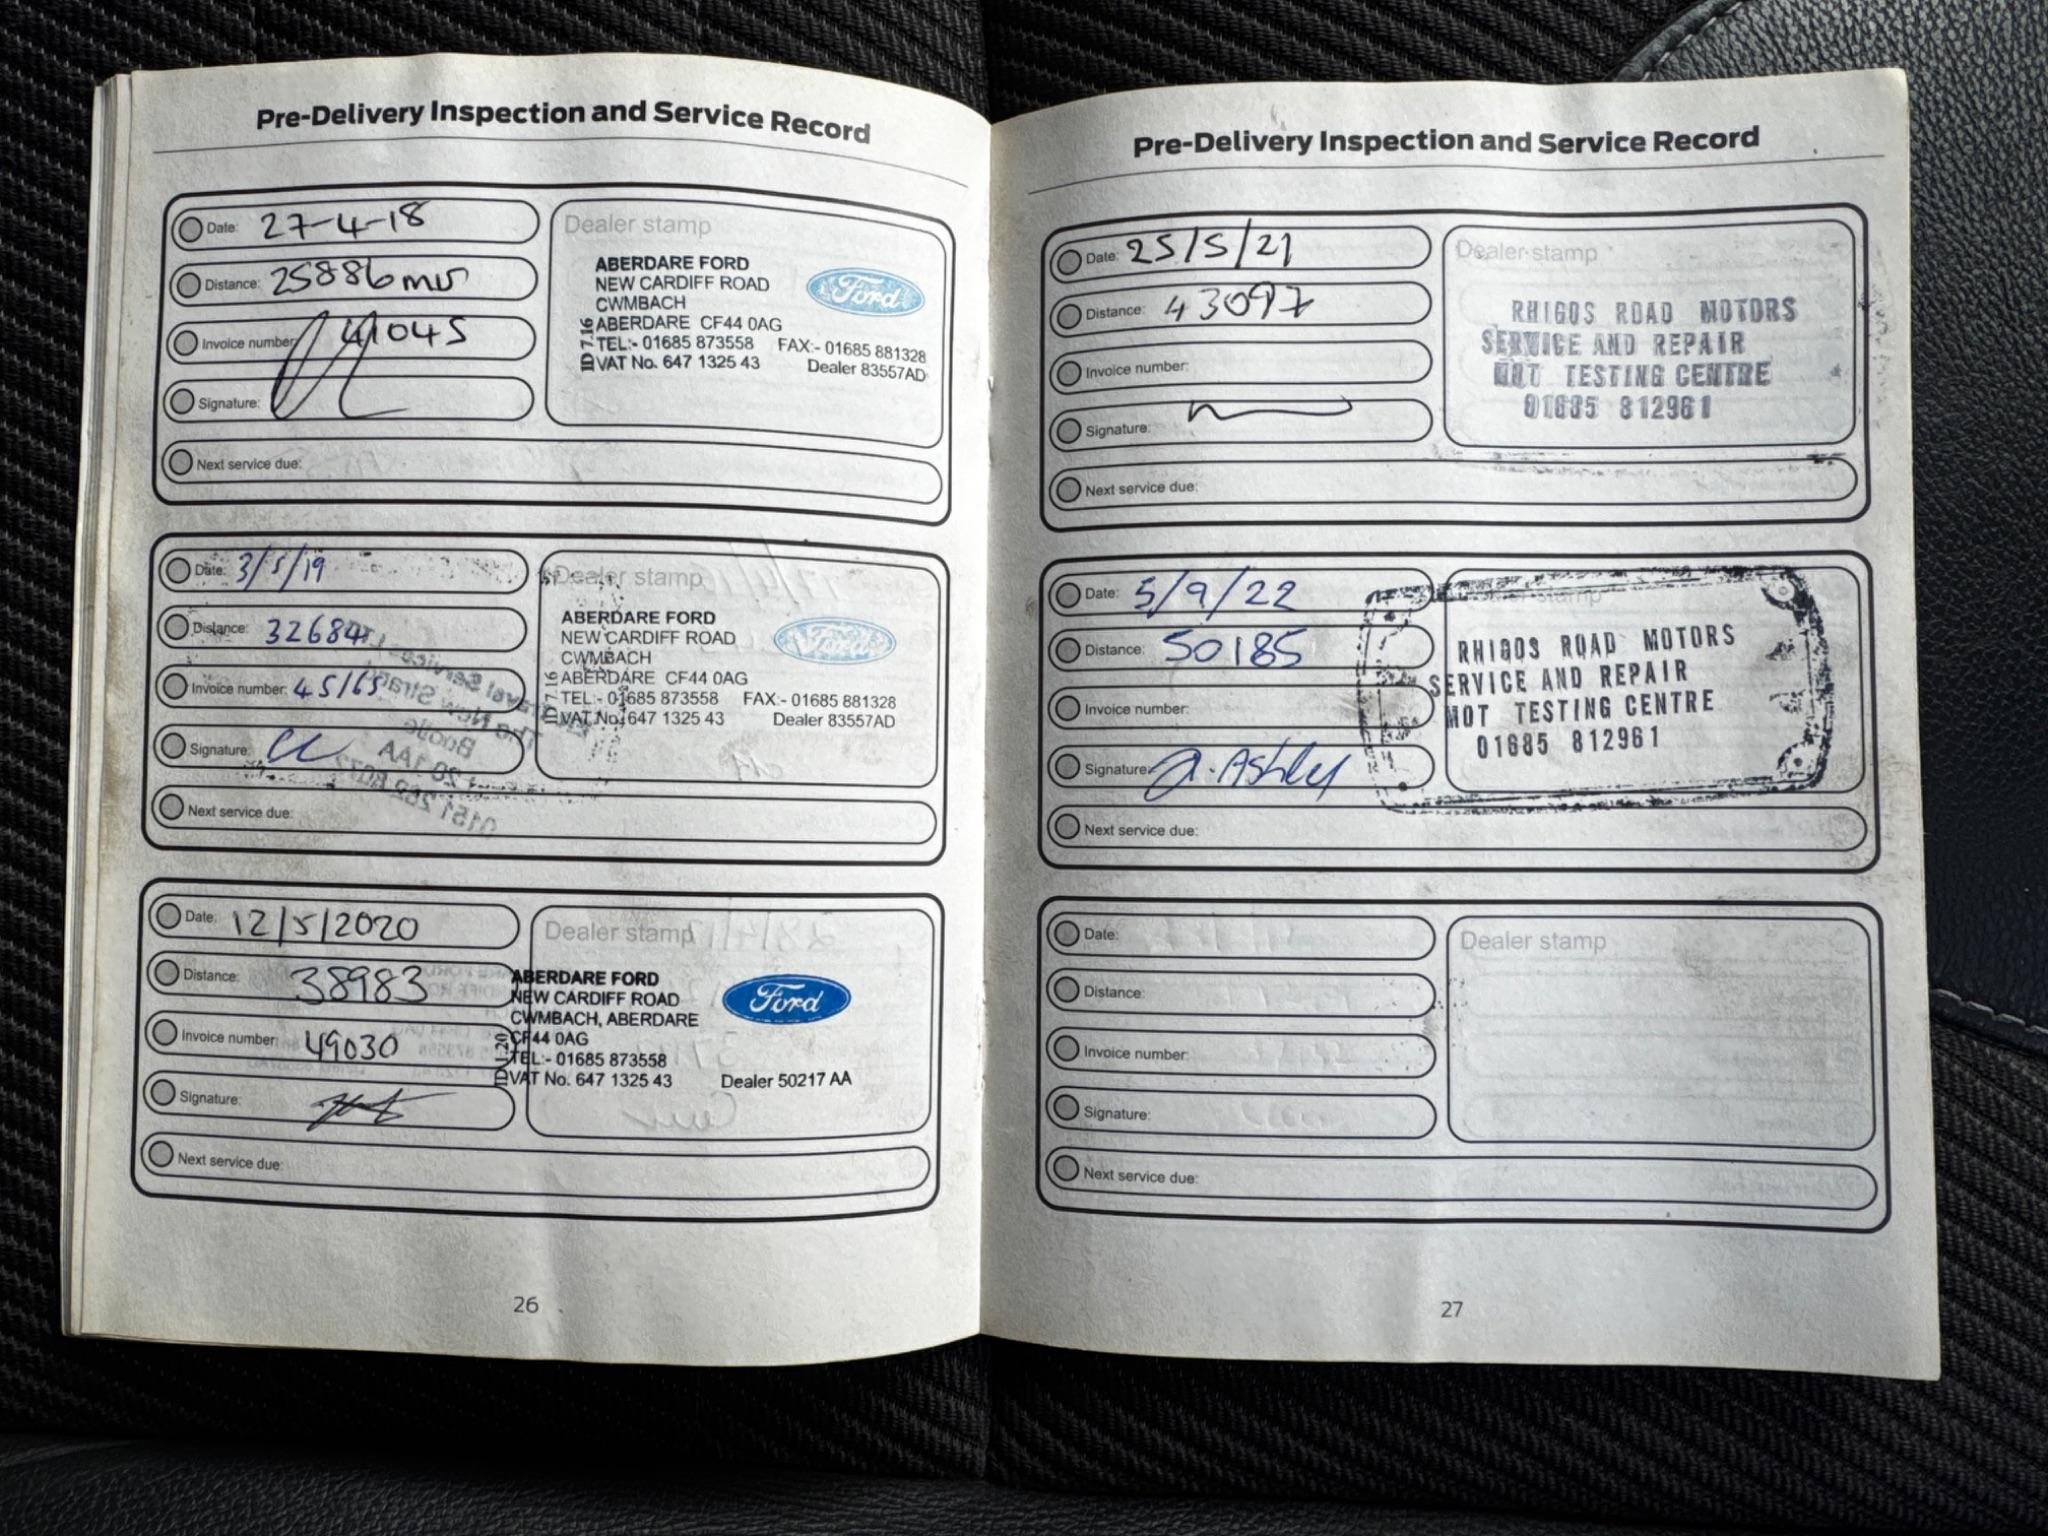 Pre-Delivery Inspection and Service Record
Date: 27-4-18
Distance: 25886
Invoice number: 41045
Signature:
Next service due:
Dealer stamp
ABERDARE FORD
NEW CARDIFF ROAD
CWMBACH
ABERDARE CF44 0AG
TEL:- 01685 873558 FAX:- 01685 881328
VAT No. 647 1325 43 Dealer 83557AD
ID 7.16
Ford
Date: 3/5/19
Distance: 32684
Invoice number: 45165
Signature:
Next service due:
Dealer stamp
ABERDARE FORD
NEW CARDIFF ROAD
CWMBACH
ABERDARE CF44 0AG
TEL:- 01685 873558 FAX:- 01685 881328
VAT No. 647 1325 43 Dealer 83557AD
ID 7.16
Ford
Date: 12/5/2020
Distance: 38983
Invoice number: 49030
Signature:
Next service due:
Dealer stamp
ABERDARE FORD
NEW CARDIFF ROAD
CWMBACH, ABERDARE
CF44 0AG
TEL:- 01685 873558
VAT No. 647 1325 43 Dealer 50217 AA
Ford
26
Pre-Delivery Inspection and Service Record
Date: 25/5/21
Distance: 43097
Invoice number:
Signature:
Next service due:
Dealer stamp
RHIGOS ROAD MOTORS
SERVICE AND REPAIR
MOT TESTING CENTRE
01685 812961
Date: 5/9/22
Distance: 50185
Invoice number:
Signature: A. Ashley
Next service due:
Dealer stamp
RHIGOS ROAD MOTORS
SERVICE AND REPAIR
MOT TESTING CENTRE
01685 812961
Date:
Distance:
Invoice number:
Signature:
Next service due:
Dealer stamp
27